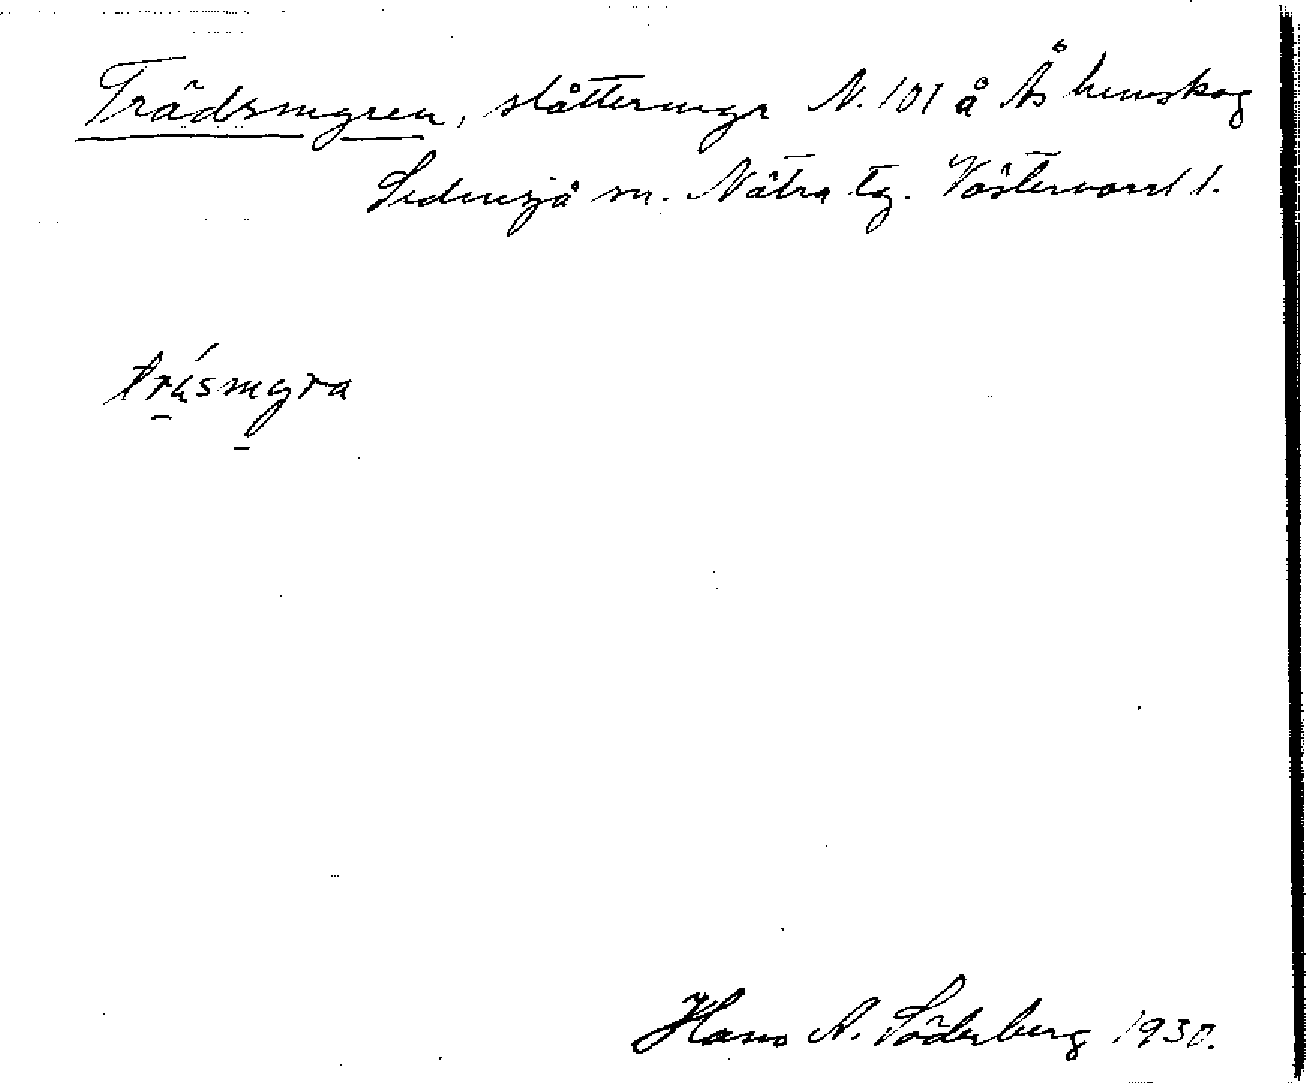 Trädsmyren, slåttermyr N. 101 å Ås hemskog
Sidensjö sn. Nätra tg. Västernorrl l.
trásmyra
Hans A. Söderberg 1930.